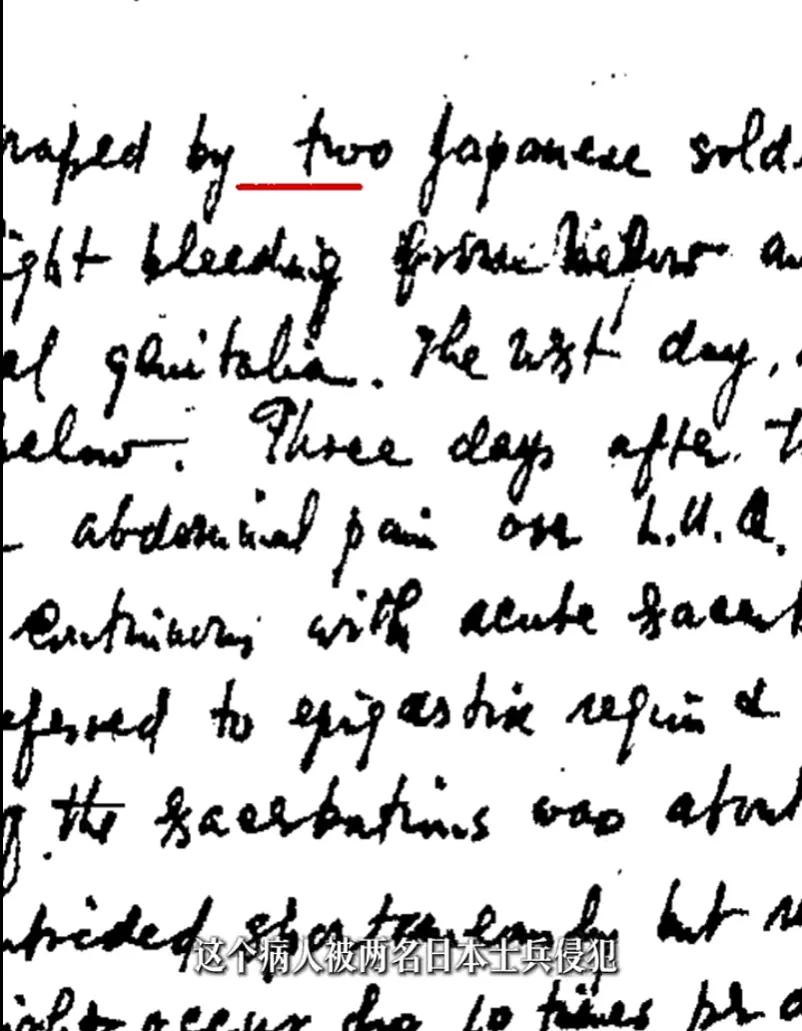 raped by two Japanese sold
ight bleeding from below an
al genitalia. The next day,
below. Three days after. th
abdominal pain on L.U.Q.
continuous with acute exacerb
eferred to epigastric region &
g the exacerbations was about
but
这个病人被两名日本士兵侵犯
occur 10 times